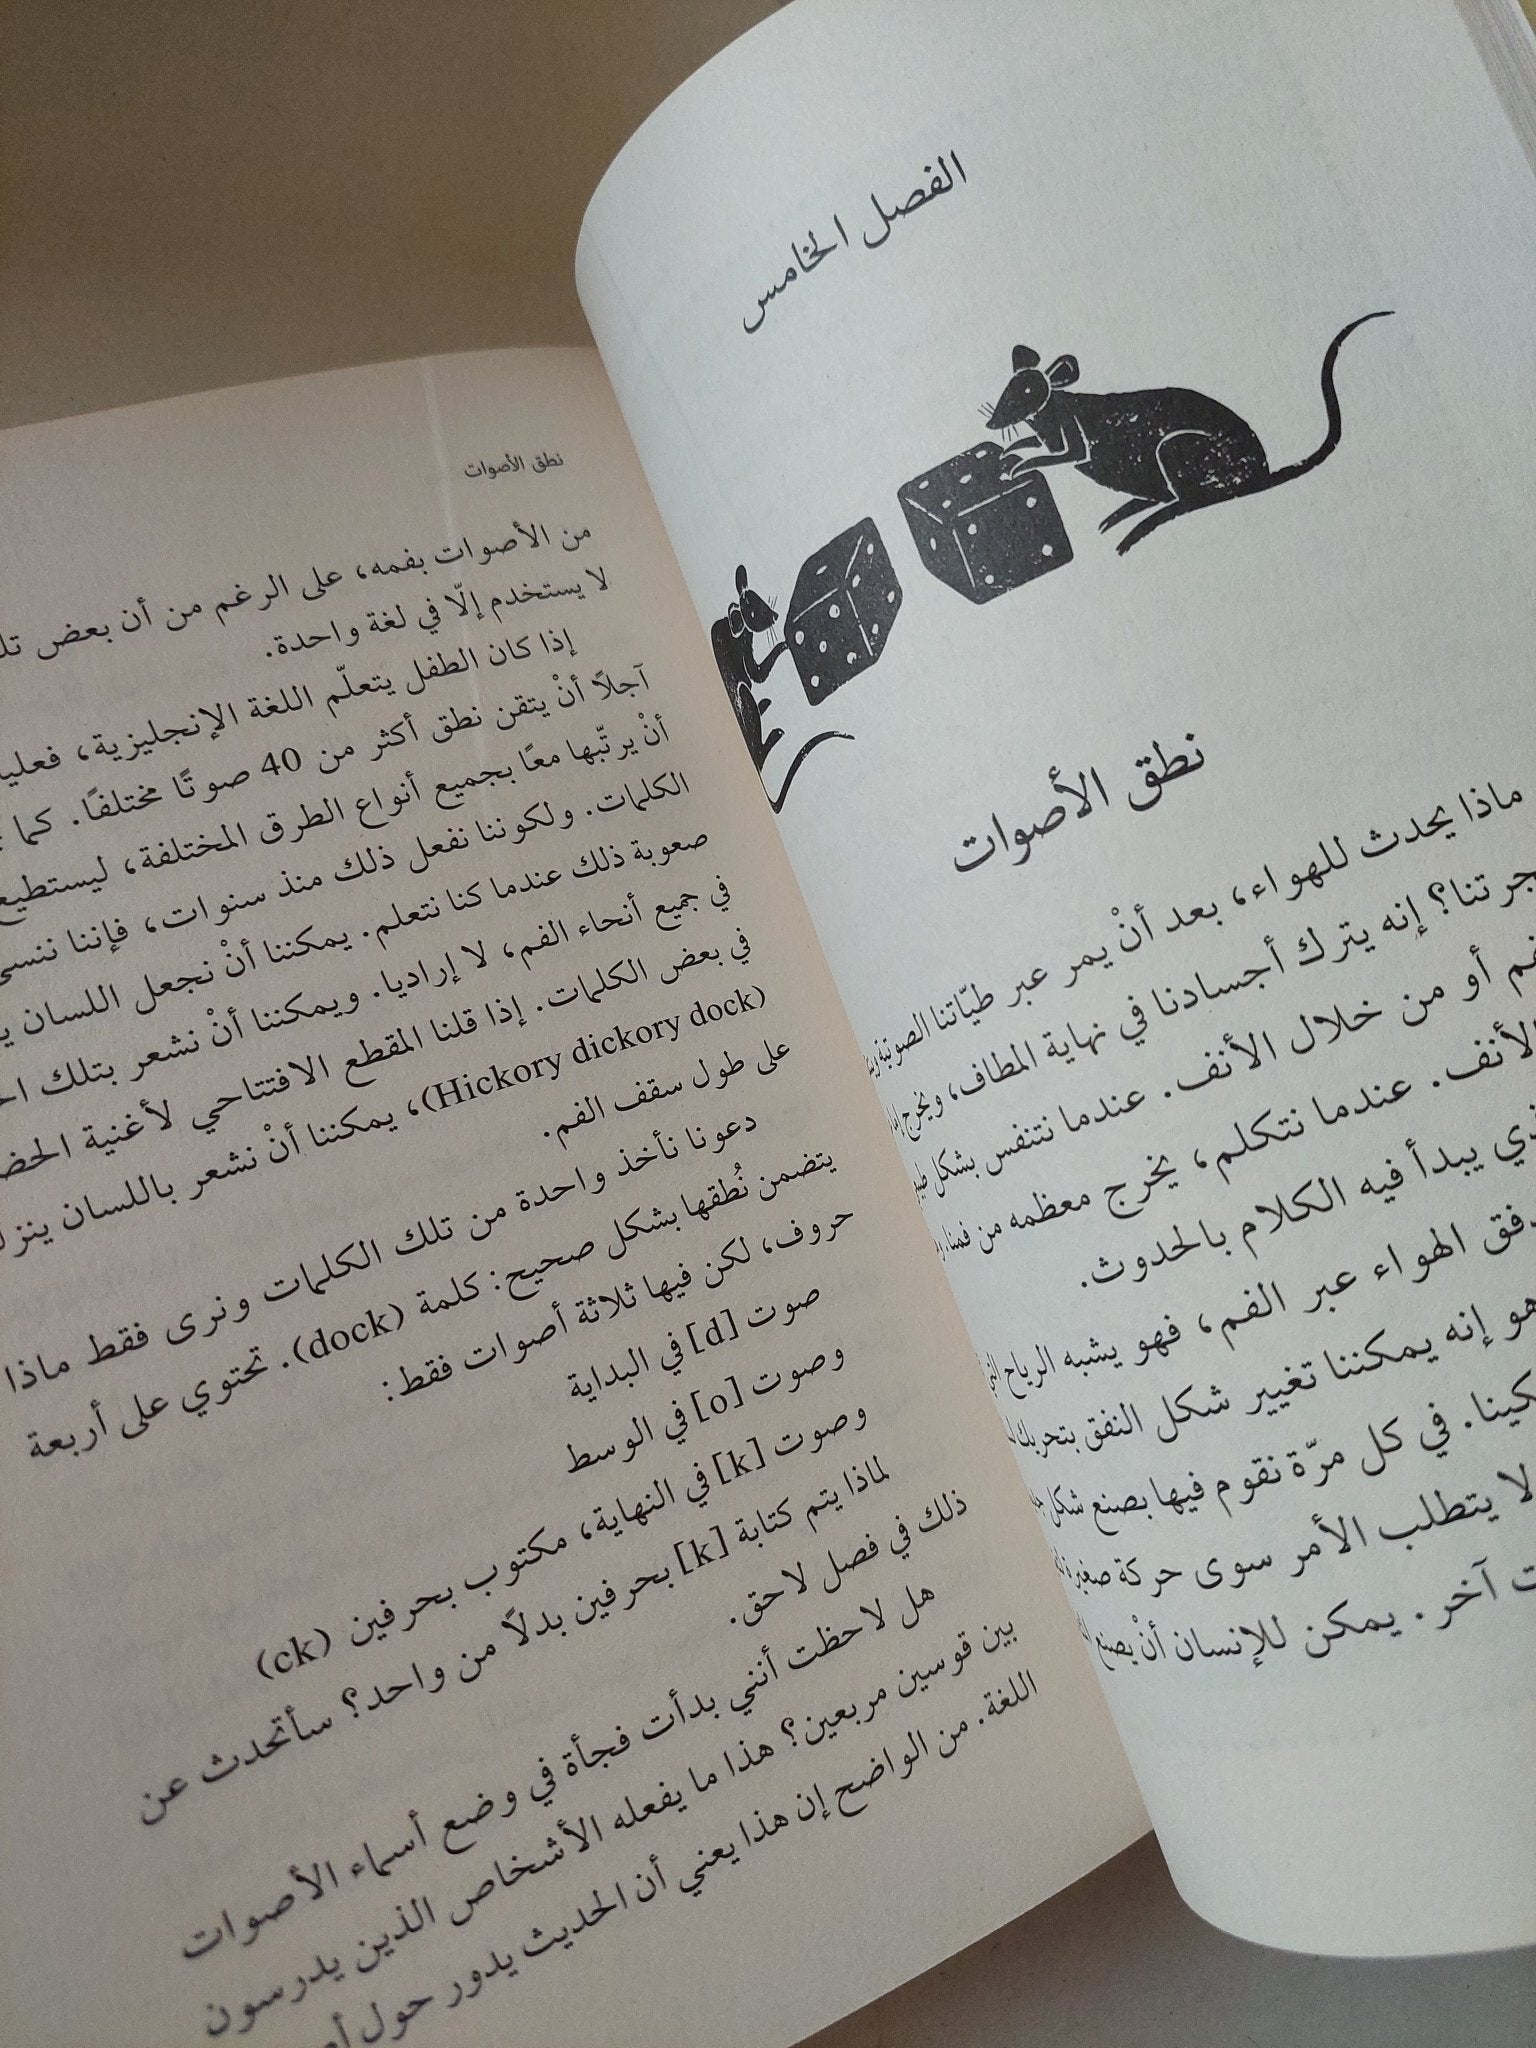 الفصل الخامس
نطق الأصوات
ماذا يحدث للهواء، بعد أنْ يمر عبر طيّاتنا الصوتية
إنه يترك أجسادنا في نهاية المطاف، ويخرج إما
أو من خلال الأنف. عندما نتنفس بشكل
الأنف. عندما نتكلم، يخرج معظمه من فمنا.
يبدأ فيه الكلام بالحدوث.
الهواء عبر الفم، فهو يشبه الرياح التي
هو إنه يمكننا تغيير شكل النفق بتحريك
في كل مرّة نقوم فيها بصنع شكل
لا يتطلب الأمر سوى حركة صغيرة
آخر. يمكن للإنسان أنْ يصنع
نطق الأصوات
من الأصوات بفمه، على الرغم من أن بعض
لا يستخدم إلّا في لغة واحدة.
إذا كان الطفل يتعلّم اللغة الإنجليزية،
آجلاً أنْ يتقن نطق أكثر من 40 صوتًا مختلفًا. كما
أنْ يرتّبها معًا بجميع أنواع الطرق المختلفة، ليستطيع
الكلمات. ولكوننا نفعل ذلك منذ سنوات، فإننا ننسى
صعوبة ذلك عندما كنا نتعلم. يمكننا أنْ نجعل اللسان
في جميع أنحاء الفم، لا إراديا. ويمكننا أنْ نشعر بتلك
في بعض الكلمات. إذا قلنا المقطع الافتتاحي لأغنية
(Hickory dickory dock)، يمكننا أنْ نشعر باللسان
على طول سقف الفم.
دعونا نأخذ واحدة من تلك الكلمات ونرى فقط ماذا
يتضمن نُطقها بشكل صحيح: كلمة (dock). تحتوي على أربعة
حروف، لكن فيها ثلاثة أصوات فقط:
صوت [d] في البداية
وصوت [o] في الوسط
وصوت [k] في النهاية، مكتوب بحرفين (ck)
لماذا يتم كتابة [k] بحرفين بدلاً من واحد؟ سأتحدث عن
ذلك في فصل لاحق.
هل لاحظت أنني بدأت فجأة في وضع أسماء الأصوات
بين قوسين مربعين؟ هذا ما يفعله الأشخاص الذين يدرسون
اللغة. من الواضح إن هذا يعني أن الحديث يدور حول